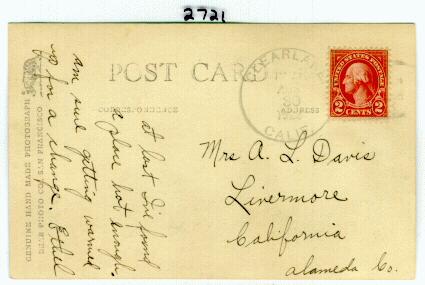 2721
POST CARD
CORRESPONDENCE
ADDRESS
CLEARLAKE
AUG
23
CALIF
UNITED STATES POSTAGE
2 CENTS 2
at last I've found
a place hot enough.
am sure getting warmed
up for a change. Ethel
Mrs A. L. Davis
Livermore
California
Alameda Co.
GENUINE HAND MADE PHOTOGRAPH
BEAR PHOTO CO. SAN FRANCISCO